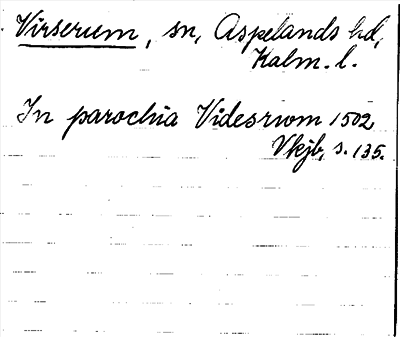 Virserum, sn, Aspelands hd,
Kalm. l.
In parochia Videsrwm 1502
Vkjb, s. 135.